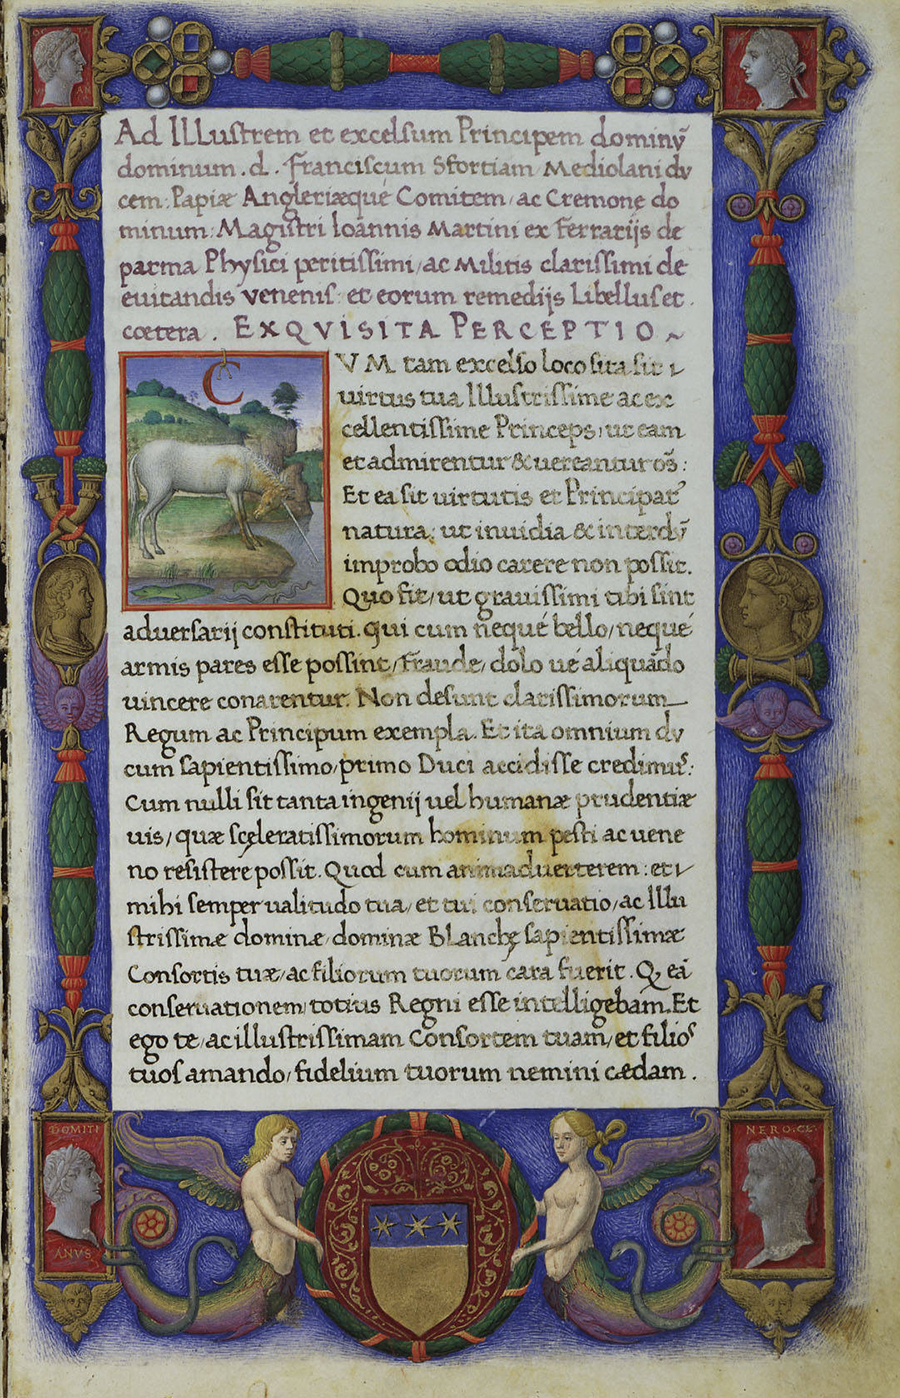 Ad Illustrem et excelsum Principem dominũ
dominum .d. Franciscum Sfortiam Mediolani du
cem: Papiæ Angleriæque Comitem, ac Cremonę do
minum: Magistri Ioannis Martini ex ferrarijs de
parma Physici peritissimi, ac Militis clarissimi de
euitandis venenis: et eorum remedijs Libellus et
cœtera. EXQVISITA PERCEPTIO
CVM tam excelso loco sita sit
uirtus tua Illustrissime ac ex
cellentissime Princeps, ut eam
et admirentur & uereantur oẽs:
Et ea sit uirtutis et Principat⁹
natura, ut inuidia & interdũ
improbo odio carere non possit.
Quo fit, ut grauissimi tibi sint
aduersarij constituti. qui cum neque bello, neque
armis pares esse possint, fraude, dolo ue aliquãdo
uincere conarentur. Non desunt clarissimorum
Regum ac Principum exempla. Et ita omnium du
cum sapientissimo, primo Duci accidisse credimus:
Cum nulli sit tanta ingenij uel humanæ prudentiæ
uis, quæ scęleratissimorum hominum pesti ac uene
no resistere possit. Quod cum animaduerterem: et
mihi semper ualitudo tua, et tui conseruatio, ac Illu
strissimæ dominæ, dominæ Blanchę sapientissimæ
Consortis tuæ, ac filiorum tuorum cara fuerit. Q, eã
conseruationem, totius Regni esse intelligebam. Et
ego te, ac illustrissimam Consortem tuam, et filios
tuos amando, fidelium tuorum nemini cædam.
DOMITI
ANVS
NERO·CE·